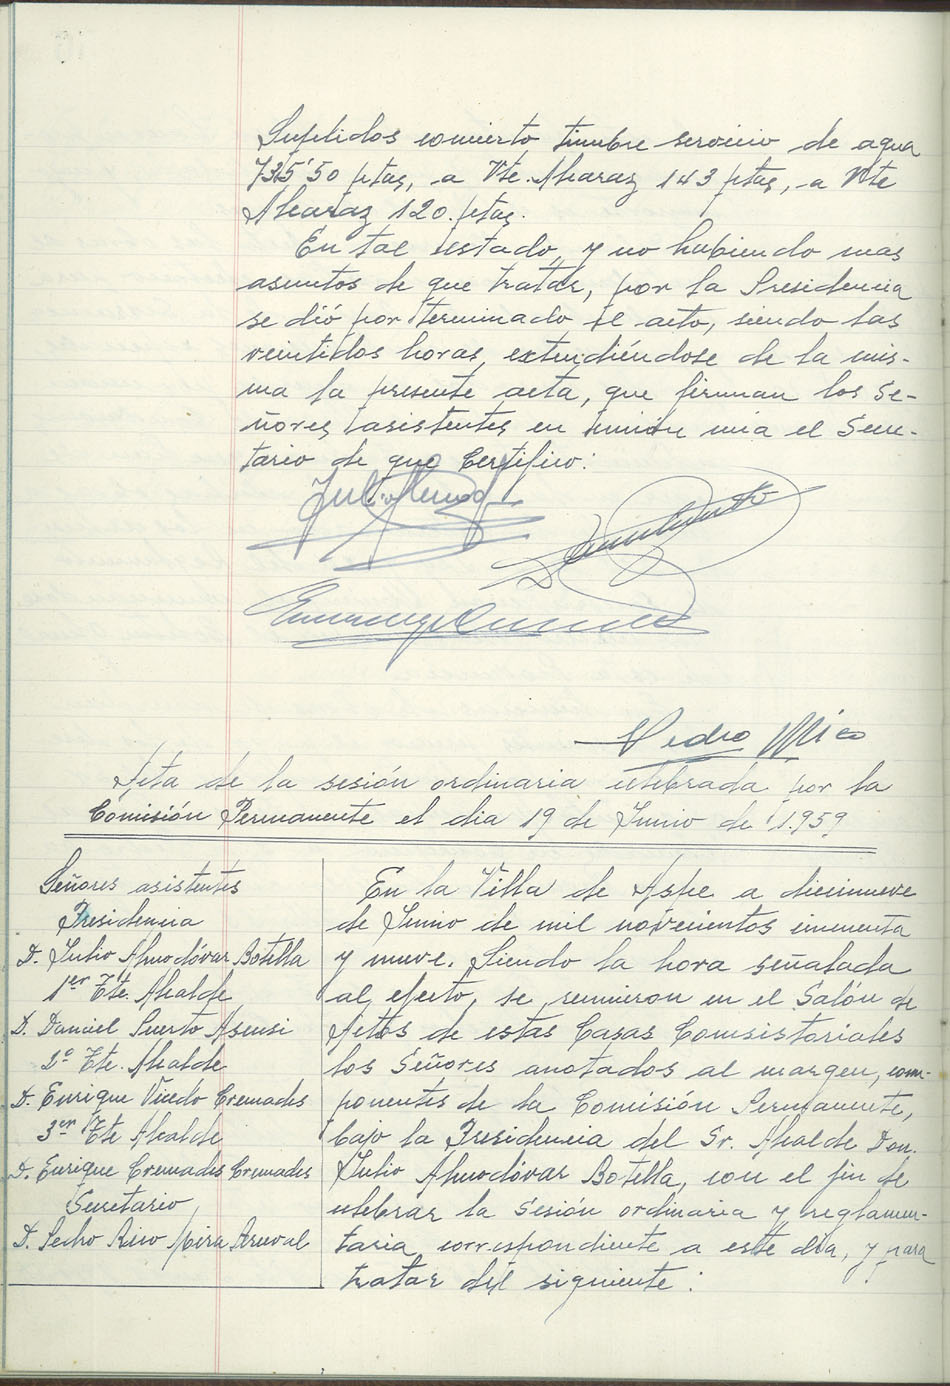 Suplidos concierto timbre servicio de agua
735'50 ptas, a Vte. Alcaraz 143 ptas, a Vte
Alcaraz 120. ptas.
En tal estado, y no habiendo mas
asuntos de que tratar, por la Presidencia
se dió por terminado el acto, siendo las
veintidos horas, extendiéndose de la mis-
ma la presente acta, que firman los Se-
ñores asistentes en unión mia el Secre-
tario de que Certifico:
Pedro Mico
Acta de la sesión ordinaria celebrada por la
Comisión Permanente el dia 19 de Junio de 1.959
Señores asistentes
Presidencia
D. Julio Almodóvar Botella
1er Tte. Alcalde
D. Daniel Puerto Asensi
2º Tte. Alcalde
D. Enrique Vicedo Cremades
3er Tte Alcalde
D. Enrique Cremades Cremades
Secretario
D. Pedro Rico Mira
En la Villa de Aspe a diecinueve
de Junio de mil novecientos cincuenta
y nueve. Siendo la hora señalada
al efecto, se reunieron en el Salón de
Actos de estas Casas Consistoriales
los Señores anotados al margen, com-
ponentes de la Comisión Permanente,
bajo la Presidencia del Sr. Alcalde Don.
Julio Almodóvar Botella, con el fin de
celebrar la Sesión ordinaria y reglamen-
taria correspondiente a este dia, y para
tratar del siguiente: